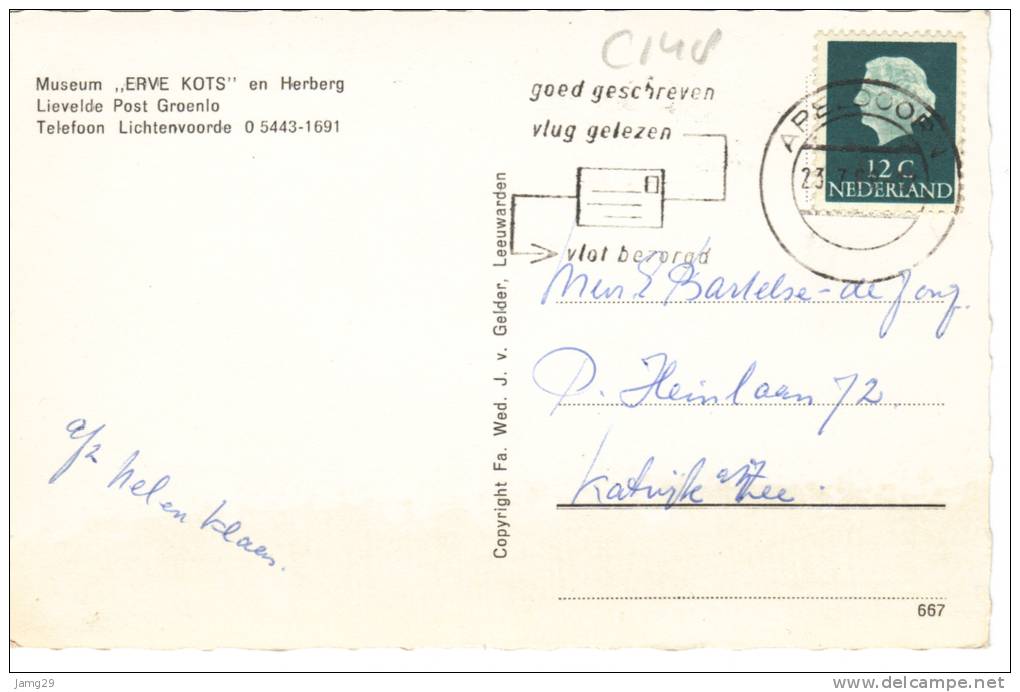 C148
Museum „ERVE KOTS" en Herberg
Lievelde Post Groenlo
Telefoon Lichtenvoorde 0 5443-1691
goed geschreven
vlug gelezen
vlot bezorgd
APELDOORN
23 7
12 C
NEDERLAND
Copyright Fa. Wed. J. v. Gelder, Leeuwarden
Mevr E Bartelse-de Jong.
P. Heinlaan 72.
Katwijk a/Zee.
Nel en Klaas.
667
Jamg29
www.delcampe.net